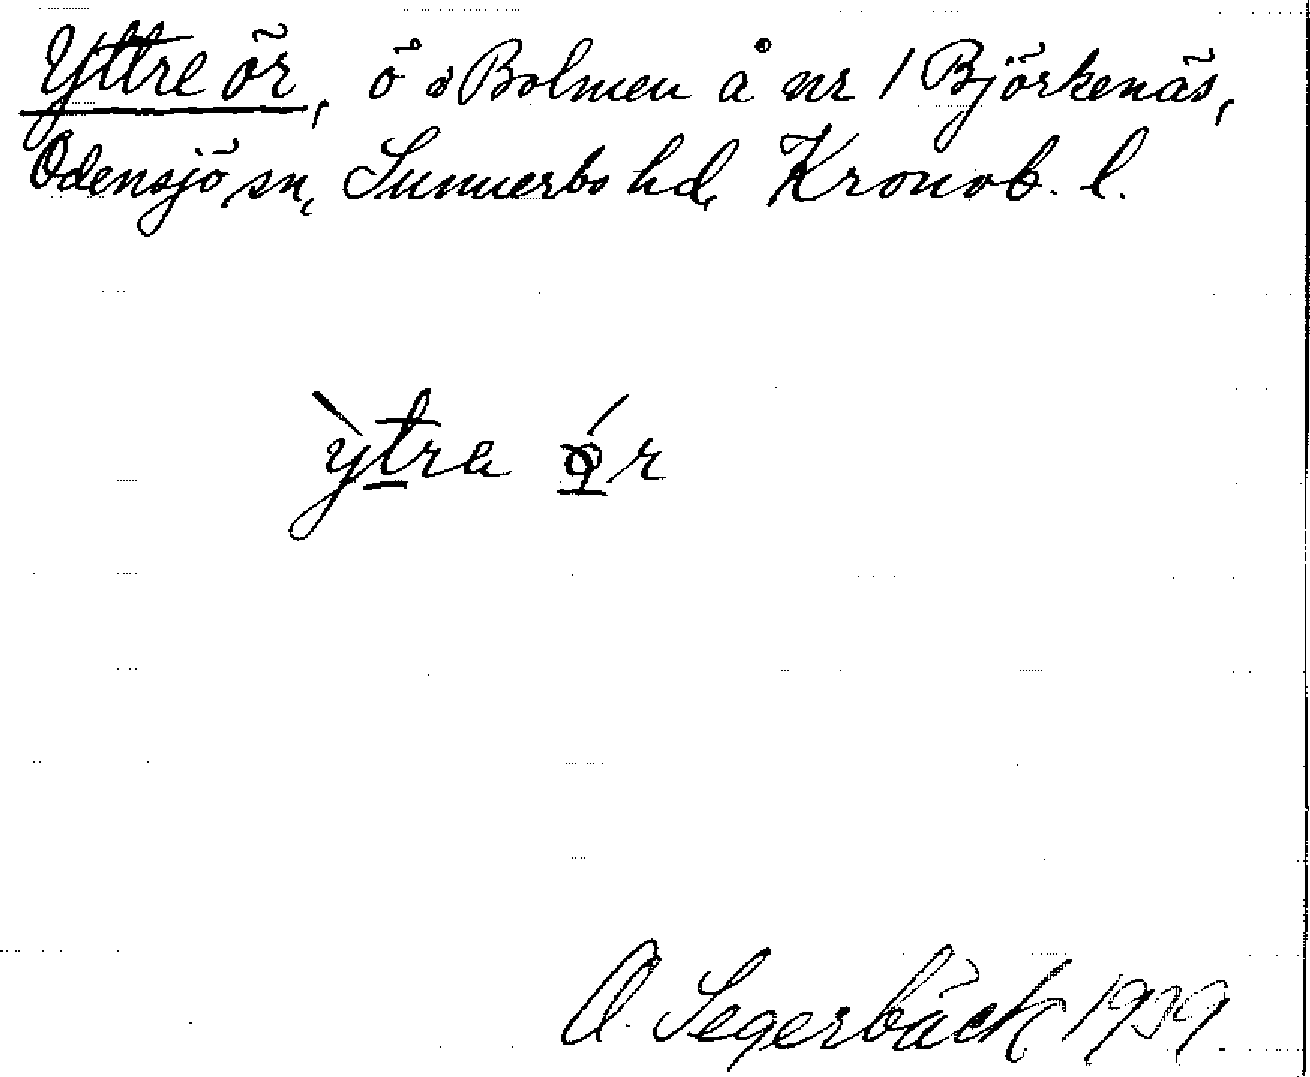 Yttre ör, ö i Bolmen å nr 1 Björkenäs,
Odensjö sn, Sunnerbo hd, Kronob. l.
ỳtra ǿ̱r
O. Segerbäck 1939.